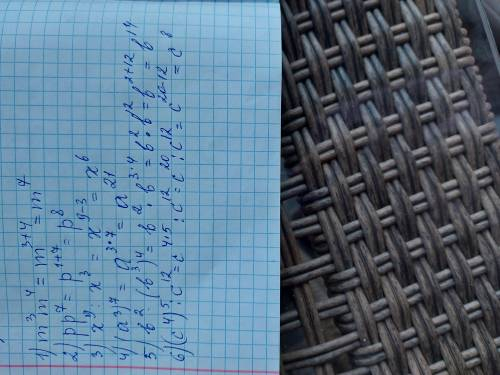 1) m³m⁴ = m³⁺⁴ = m⁷
2) pp⁷ = p¹⁺⁷ = p⁸
3) x⁹ : x³ = x⁹⁻³ = x⁶
4) (a³·⁷ = a³·⁷ = a²¹
5) b² (b³)⁴ = b² · b³·⁴ = b² · b¹² = b²⁺¹² = b¹⁴
6) (c⁴)⁵ : c¹² = c⁴·⁵ : c¹² = c²⁰ : c¹² = c²⁰⁻¹² = c⁸